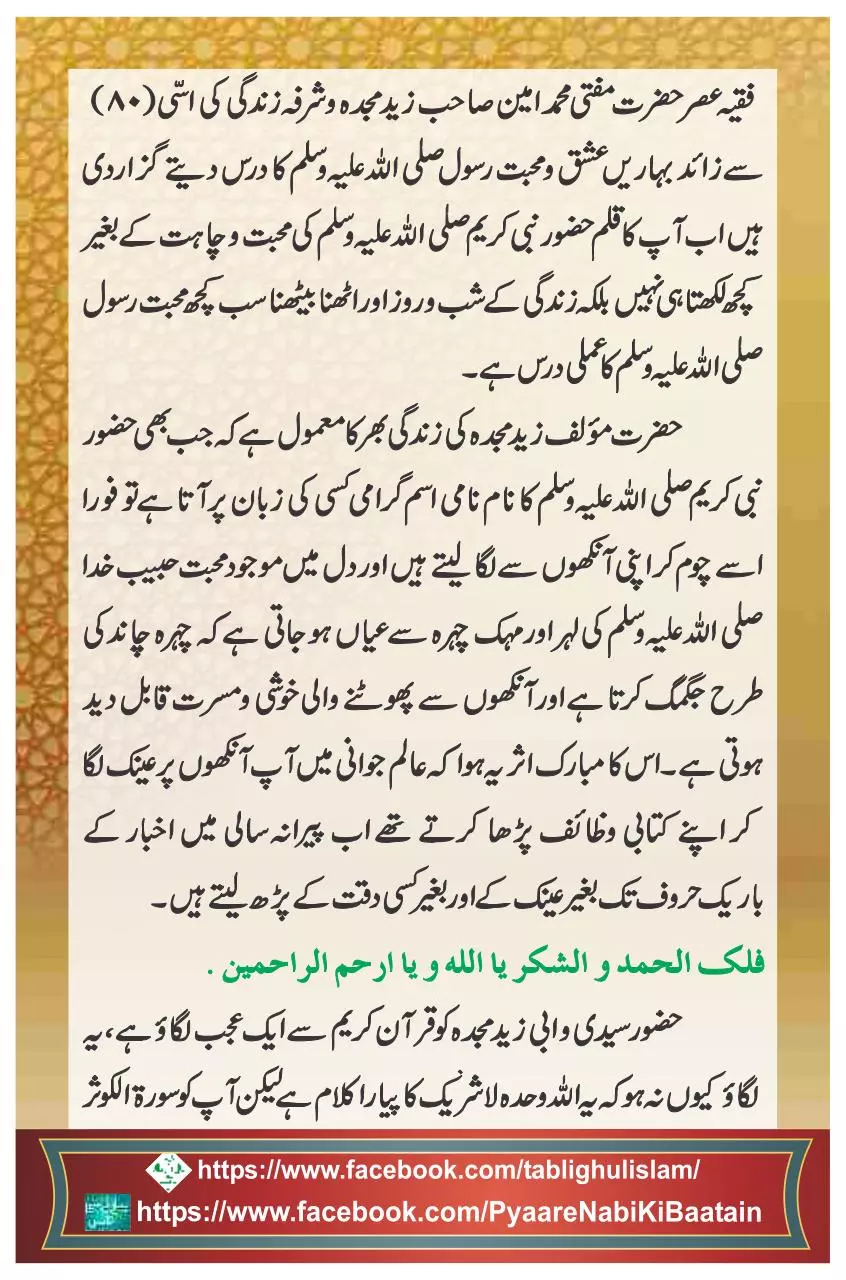 فقیہ عصر حضرت مفتی محمد امین صاحب زید مجدہ و شرفہ زندگی کی اسّی (۸۰)
سے زائد بہاریں عشق و محبت رسول صلی اللہ علیہ وسلم کا درس دیتے گزار دی
ہیں اب آپ کا قلم حضور نبی کریم صلی اللہ علیہ وسلم کی محبت و چاہت کے بغیر
کچھ لکھتا ہی نہیں بلکہ زندگی کے شب و روز اور اٹھنا بیٹھنا سب کچھ محبت رسول
صلی اللہ علیہ وسلم کا عملی درس ہے۔
حضرت مؤلف زید مجدہ کی زندگی بھر کا معمول ہے کہ جب بھی حضور
نبی کریم صلی اللہ علیہ وسلم کا نام نامی اسم گرامی کسی کی زبان پر آتا ہے تو فورا
اسے چوم کر اپنی آنکھوں سے لگا لیتے ہیں اور دل میں موجود محبت حبیب خدا
صلی اللہ علیہ وسلم کی لہر اور مہک چہرہ سے عیاں ہو جاتی ہے کہ چہرہ چاند کی
طرح جگمگ کرتا ہے اور آنکھوں سے پھوٹنے والی خوشی و مسرت قابل دید
ہوتی ہے۔ اس کا مبارک اثر یہ ہوا کہ عالم جوانی میں آپ آنکھوں پر عینک لگا
کر اپنے کتابی وظائف پڑھا کرتے تھے اب پیرانہ سالی میں اخبار کے
باریک حروف تک بغیر عینک کے اور بغیر کسی دقت کے پڑھ لیتے ہیں۔
فلک الحمد و الشکر یا اللہ و یا ارحم الراحمین .
حضور سیدی وابی زید مجدہ کو قرآن کریم سے ایک عجب لگاؤ ہے، یہ
لگاؤ کیوں نہ ہو کہ یہ اللہ وحدہ لا شریک کا پیارا کلام ہے لیکن آپ کو سورۃ الکوثر
https://www.facebook.com/tablighulislam/
https://www.facebook.com/PyaareNabiKiBaatain